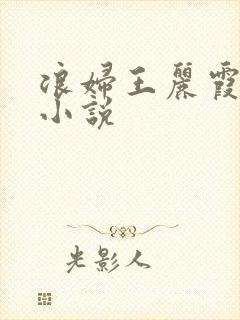 浪婦王麗霞
小說
光影人